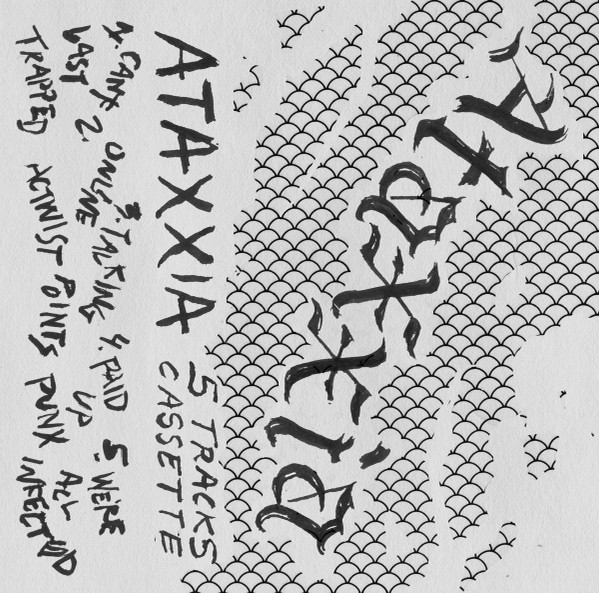 ATAXXIA
ATAXXIA
5 TRACKS
CASSETTE
1. CANT
LAST
TRAPPED
2. ONLINE
ACTIVIST
3. TALKING
POINTS
4. PAID
UP
PUNX
5. WERE
ALL
INFECTED